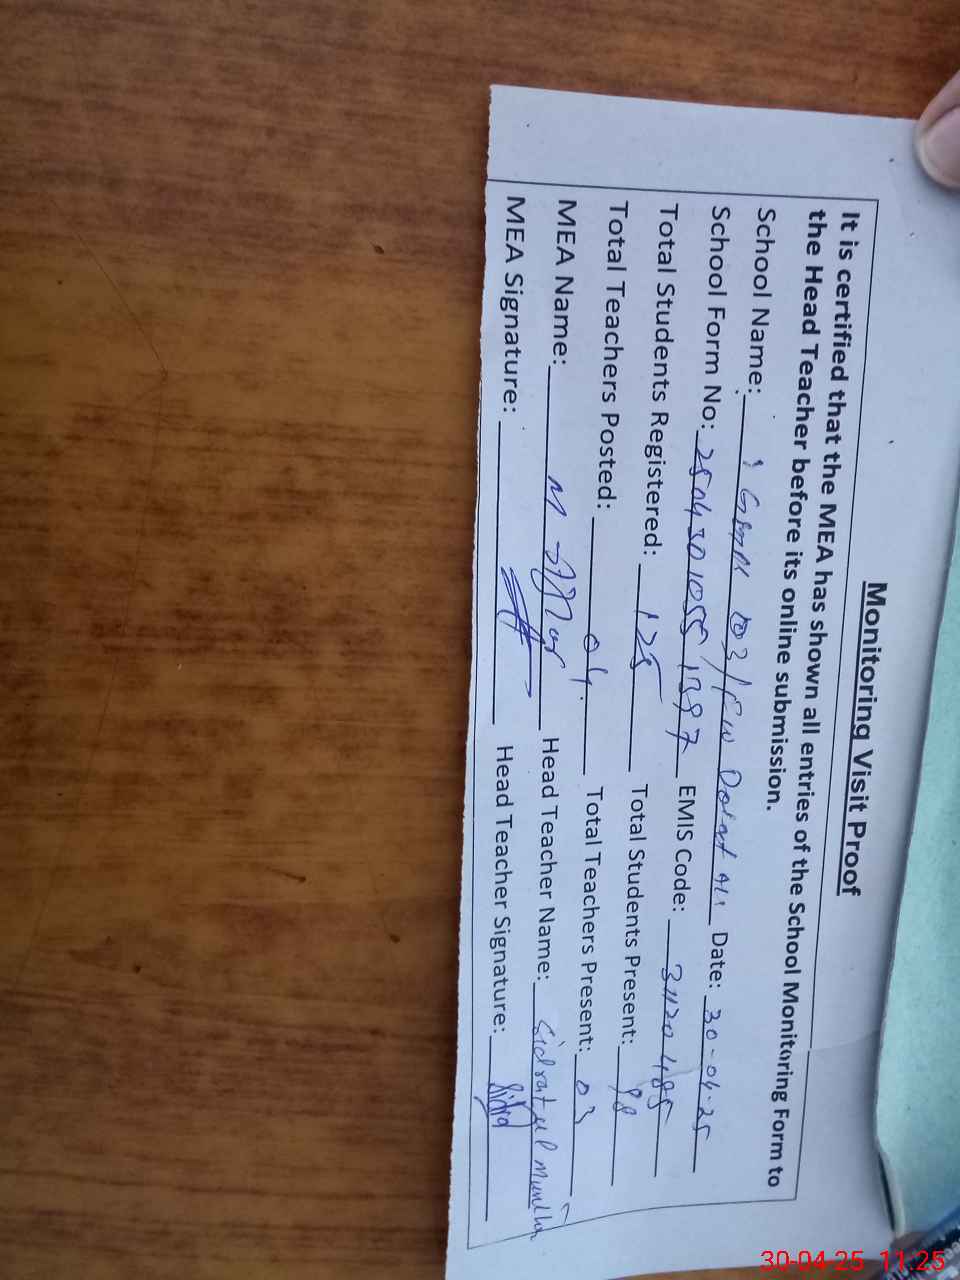 Monitoring Visit Proof
It is certified that the MEA has shown all entries of the School Monitoring Form to
the Head Teacher before its online submission.
School Name: 103/ Date: 30-04-25
School Form No: 25043010551397 EMIS Code: 31120485
Total Students Registered: 125 Total Students Present: 98
Total Teachers Posted: 04. Total Teachers Present: 03
MEA Name: M Head Teacher Name: Sidrat ul Muntha
MEA Signature: Head Teacher Signature: Sidra
30-04-25 11:25